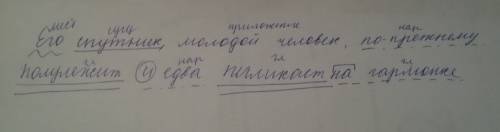 мест сущ приложение нар
Его спутник, молодой человек, по-прежнему
гл нар гл
полулежит и едва пиликает на гармонке.